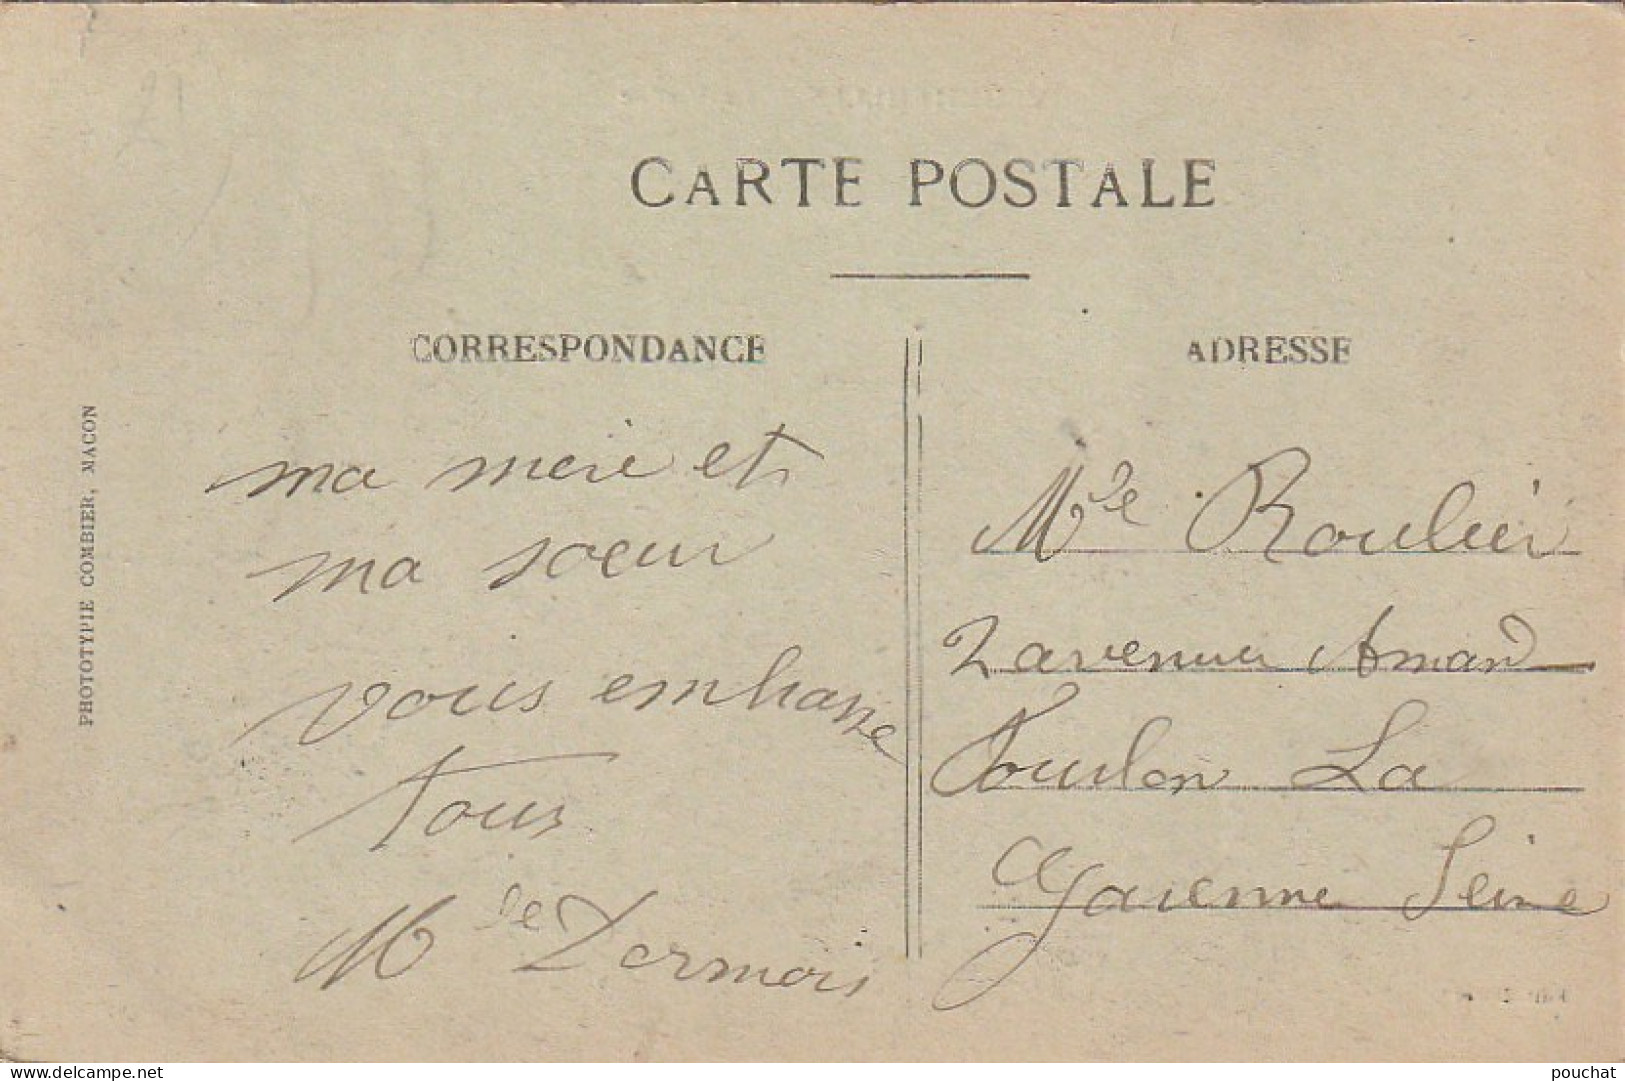 CARTE POSTALE
CORRESPONDANCE
ma mère et
ma soeur
vous embrasse
tous
Mle Dormois
ADRESSE
Mle Roulier
2 avenue Amand
Toulon La
Garenne Seine
PHOTOTYPIE COMBIER, MACON
www.delcampe.net
pouchat